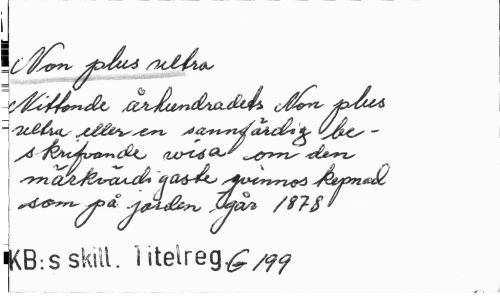 Non plus ultra
Nittonde århundradets Non plus
ultra eller en sannfärdig be-
skrifvande wisa om den
märkvärdigaste qvinnoskepnad
som på jorden går 1878
KB:s skill. Titelreg. G 199